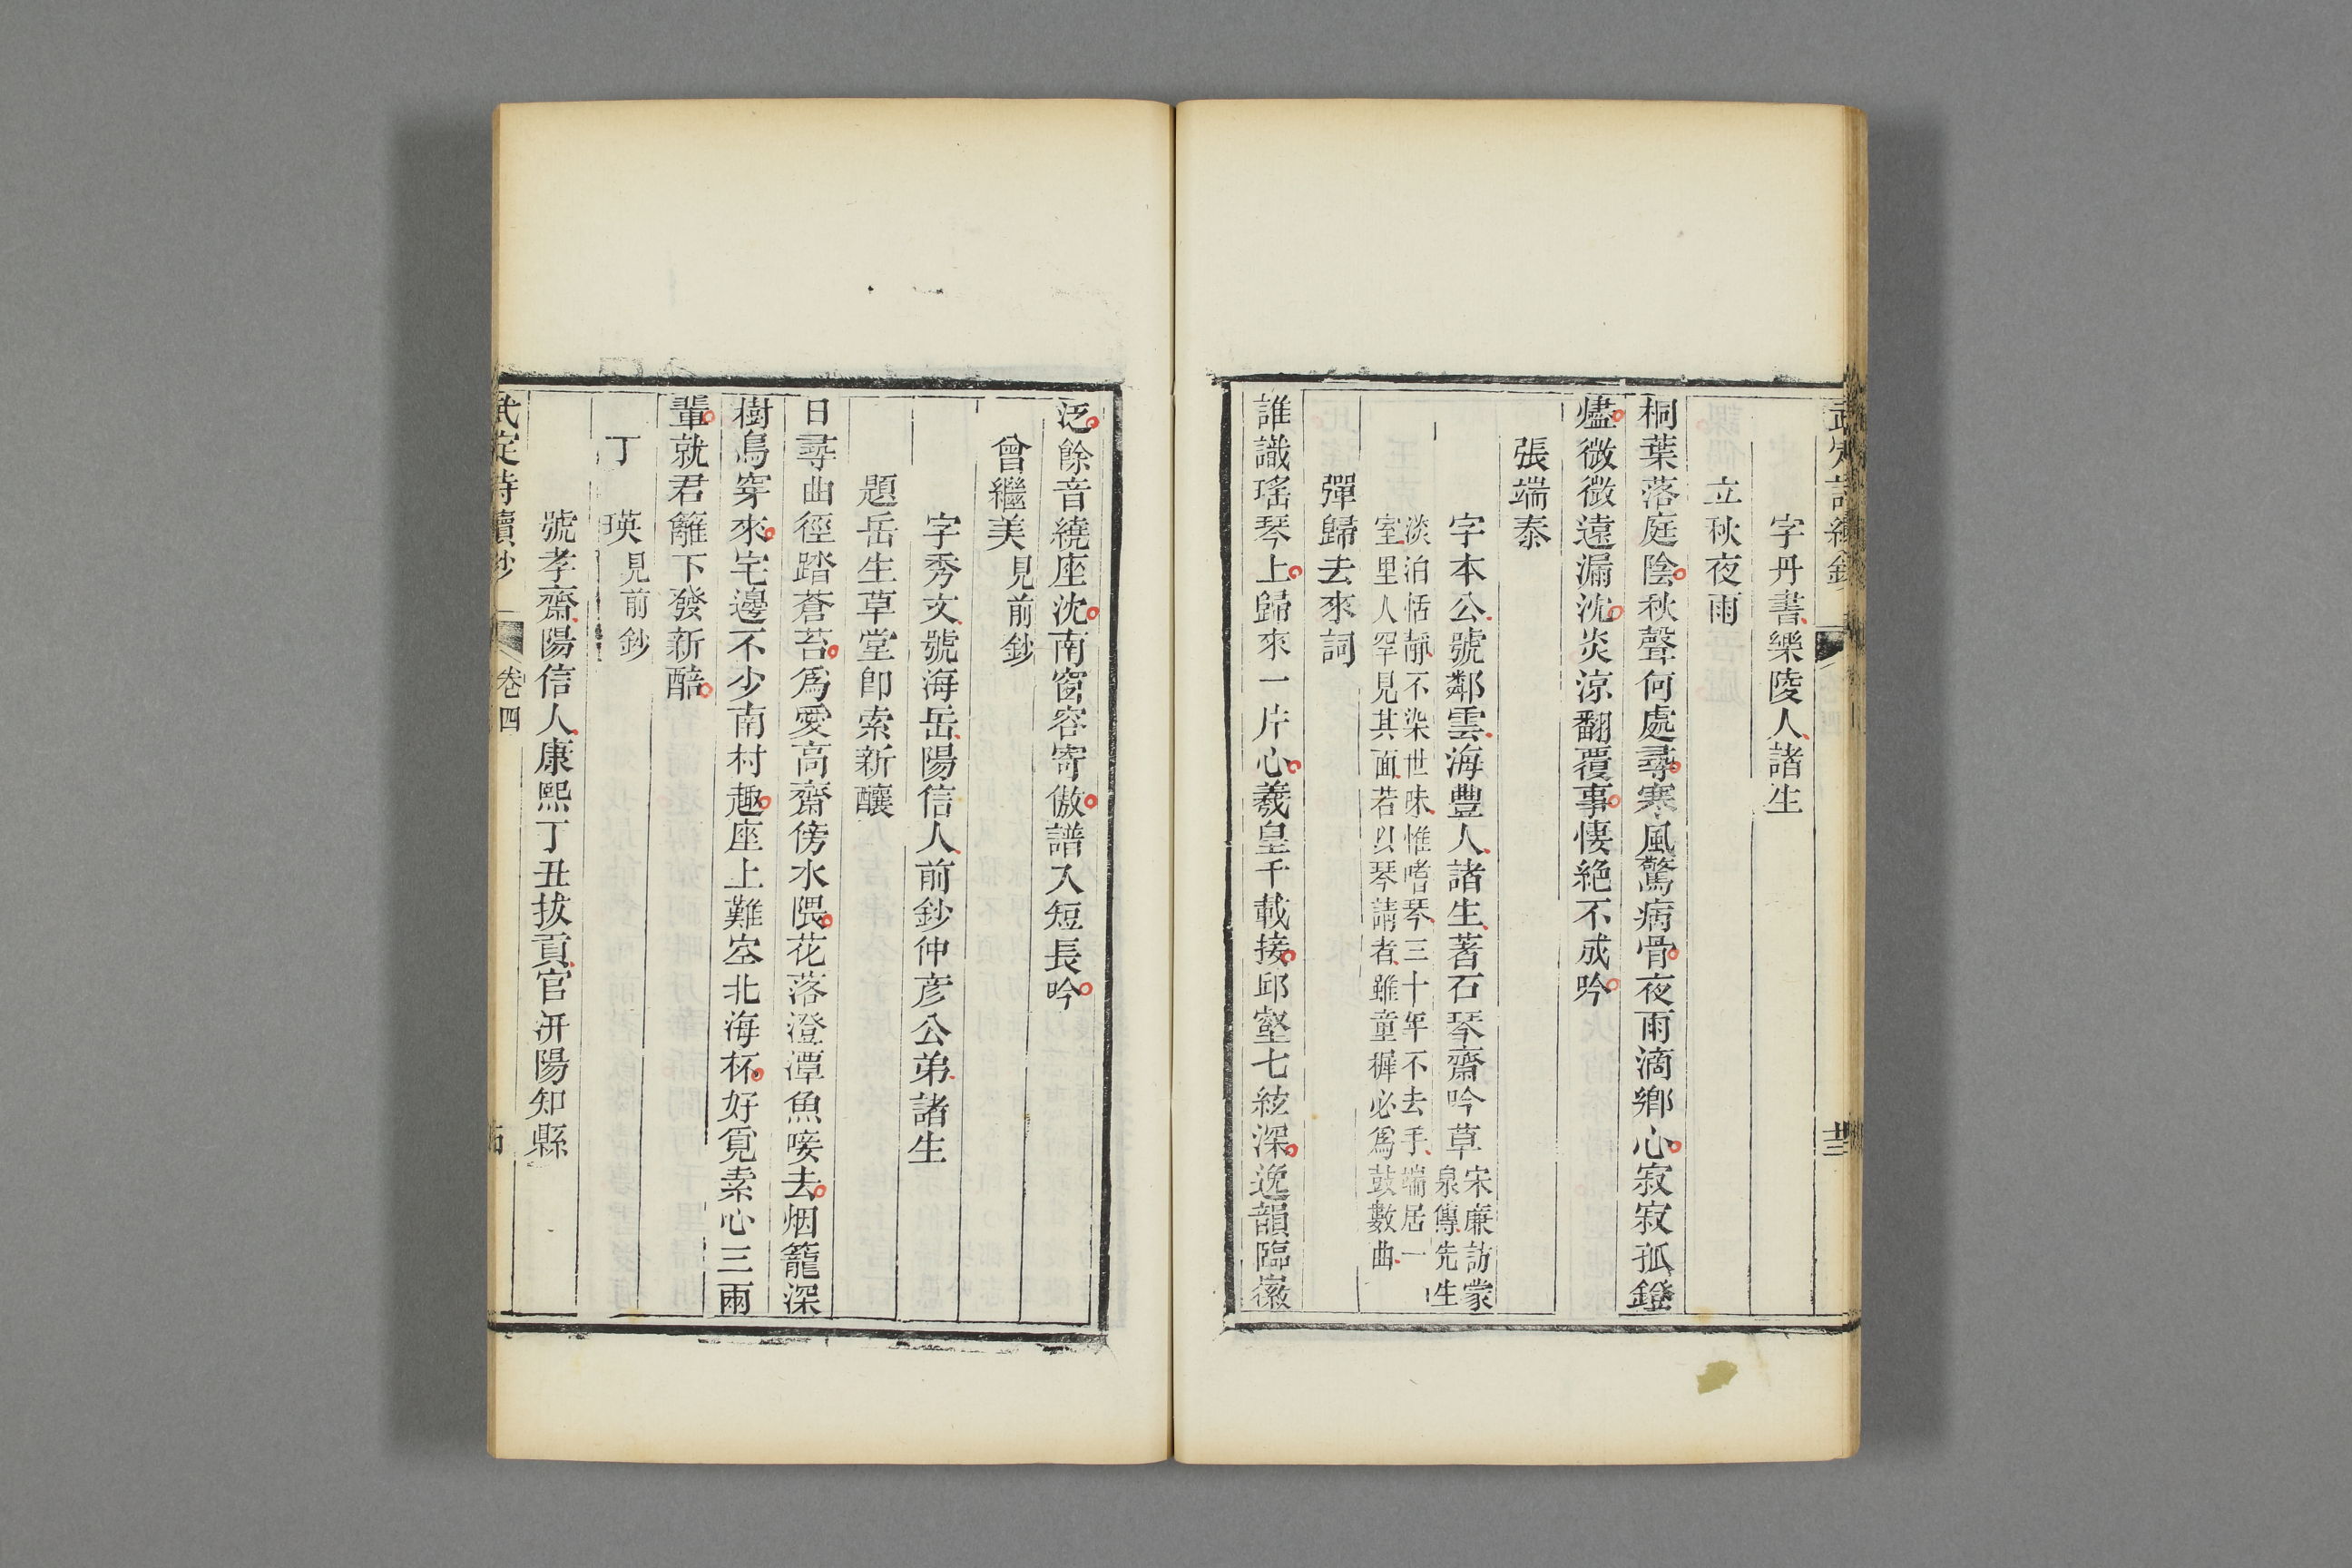 字丹書樂陵人諸生
立秋夜雨
桐葉落庭陰秋聲何處尋寒風驚病骨夜雨滴鄉心寂寂孤鐙
燼微微遠漏沈炎涼翻覆事悽絕不成吟
張端泰
字本公號鄰雲海豐人諸生著石琴齋吟草宋廉訪蒙
泉傳先生
淡泊恬靜不染世味惟嗜琴三十年不去手端居一
室里人罕見其面若以琴請者雖童穉必爲鼓數曲
彈歸去來詞
誰識瑤琴上歸來一片心羲皇千載接邱壑七絃深逸韻臨徽
泛餘音繞座沈南窗容寄傲譜入短長吟
曾繼美見前鈔
字秀文號海岳陽信人前鈔仲彥公弟諸生
題岳生草堂卽索新釀
日尋曲徑踏蒼苔爲愛高齋傍水隈花落澄潭魚唼去烟籠深
樹鳥穿來宅邊不少南村趣座上難空北海杯好覓素心三兩
輩就君籬下發新醅
丁瑛見前鈔
號孝齋陽信人康熙丁丑拔貢官汧陽知縣
武定詩續鈔 卷四